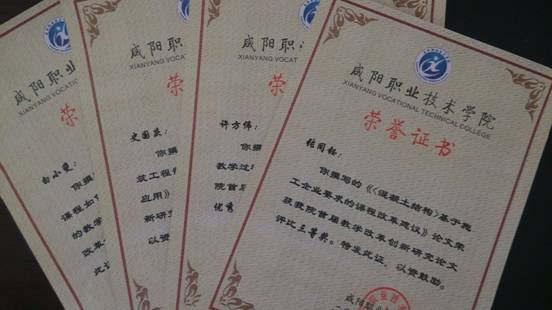 咸阳职业
XIANYANG VOCAT
荣
白小斐:
你撰
课程如
的教学
改革
此证
咸阳职
XIANYANG VOCATI
荣
史国庆:
你撰
筑工程
应用》
新研究
以资
咸阳职
XIANYANG VOC
荣
许方伟:
你撰
教学过
院首届
优秀
咸阳职业技术学院
XIANYANG VOCATIONAL TECHNICAL COLLEGE
荣誉证书
你撰写的《《混凝土结构》基于施
工企业要求的课程改革建议》论文荣
获我院首届教学改革创新研究论文
评比三等奖。特发此证,以资鼓励。
咸阳职业